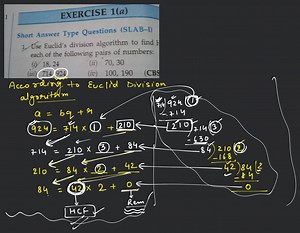 EXERCISE 1(a)
Short Answer Type Questions (SLAB-I)
1. Use Euclid's division algorithm to find
each of the following pairs of numbers:
(i) 18, 24 (ii) 70, 30
714, 924 100, 190 (CBS
According to Euclid Division
algorithm
a = bq + r
924 = 714 × 1 + 210
714 = 210 × 3 + 84
210 = 84 × 2 + 42
84 = 42 × 2 + 0
HCF Rem
714 924 1
- 714
210 714 3
- 630
84 210 2
- 168
42 84 2
- 84
0